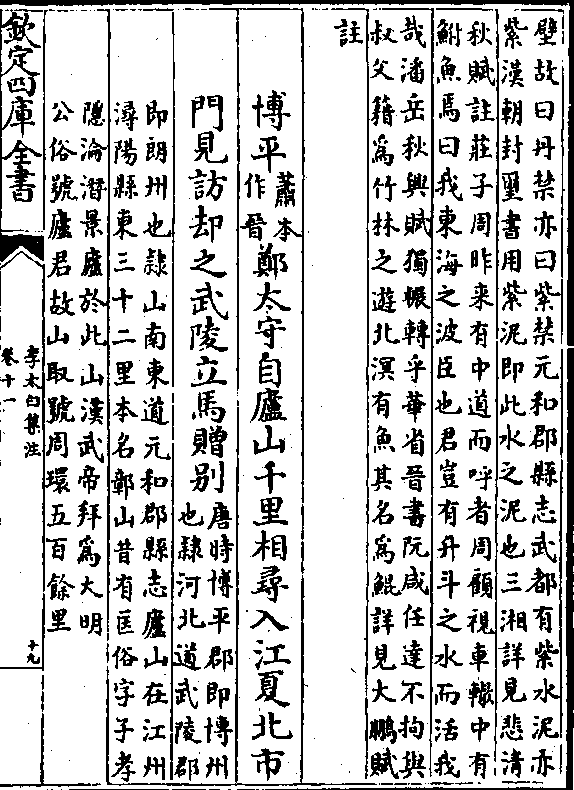 壁故曰丹禁亦曰紫禁元和郡縣志武都有紫水泥亦
紫漢朝封璽書用紫泥即此水之泥也三湘詳見悲清
秋賦註莊子周昨來有中道而呼者周顧視車轍中有
鮒魚焉曰我東海之波臣也君豈有升斗之水而活我
哉潘岳秋興賦獨輾轉乎華省晉書阮咸任達不拘與
叔父籍為竹林之遊北溟有魚其名為鯤詳見大鵬賦
註
博平蕭本作晉鄭太守自廬山千里相尋入江夏北市
門見訪却之武陵立馬贈别唐時博平郡即博州也隸河北道武陵郡
即朗州也隸山南東道元和郡縣志廬山在江州
潯陽縣東三十二里本名鄣山昔有匡俗字子孝
隱淪潛景廬於此山漢武帝拜為大明
公俗號廬君故山取號周環五百餘里
欽定四庫全書
李太白集注
卷十一
十九